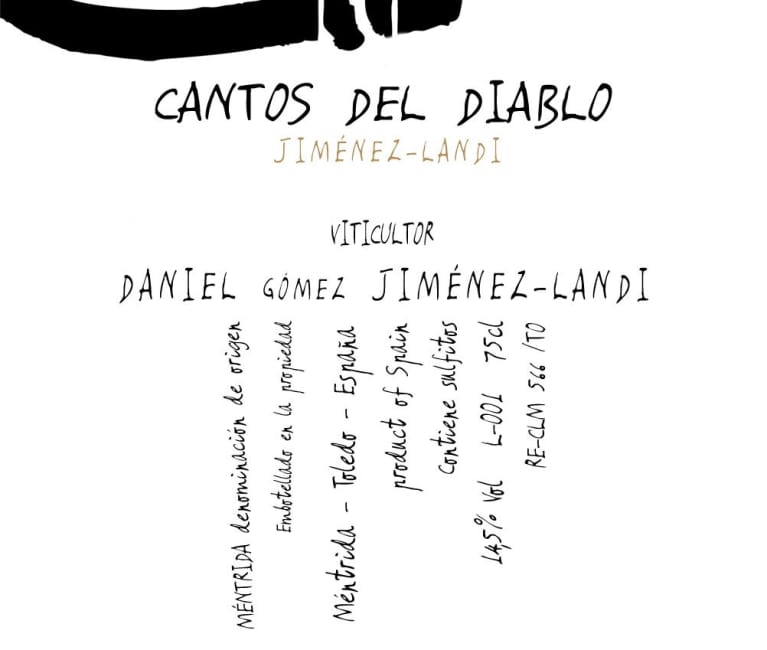 CANTOS DEL DIABLO
JIMÉNEZ-LANDI
VITICULTOR
DANIEL GÓMEZ JIMÉNEZ-LANDI
MÉNTRIDA denominación de origen
Embotellado en la propiedad
Méntrida - Toledo - España
product of Spain
Contiene sulfitos
14,5% Vol L-001 75cl
RE-CLM 566 /TO